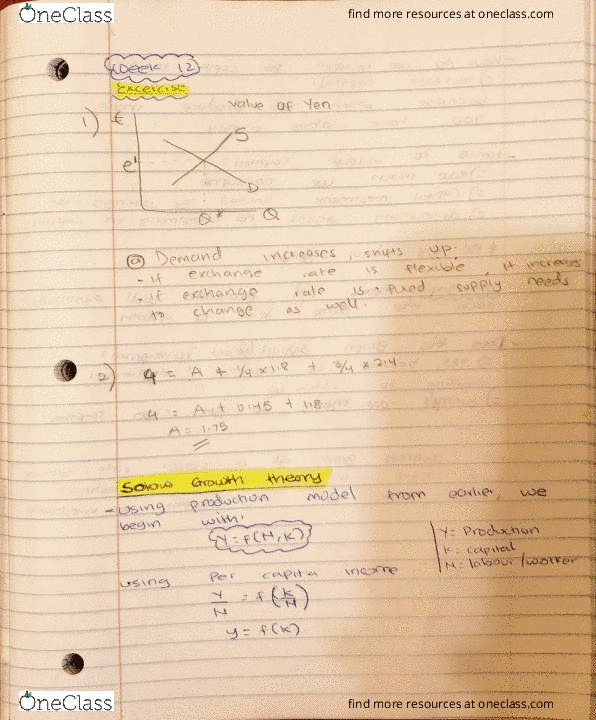 OneClass
find more resources at oneclass.com
Week 12
Excercise
value of Yen
1) E
S
e'
D
Q* Q
(a) Demand increases, shifts up.
- If exchange rate is flexible, it increases
- If exchange rate is fixed, supply needs
to change as well.
2) 4 = A + 1/4 x 1.8 + 3/4 x 2.4
4 = A + 0.45 + 1.8
A = 1.75
Solow Growth theory
- Using production model from earlier, we
begin with:
Y = f(N, K)
Y = Production
K = capital
N = labour/worker
using Per capita income
Y/N = f(K/N)
y = f(k)
OneClass
find more resources at oneclass.com